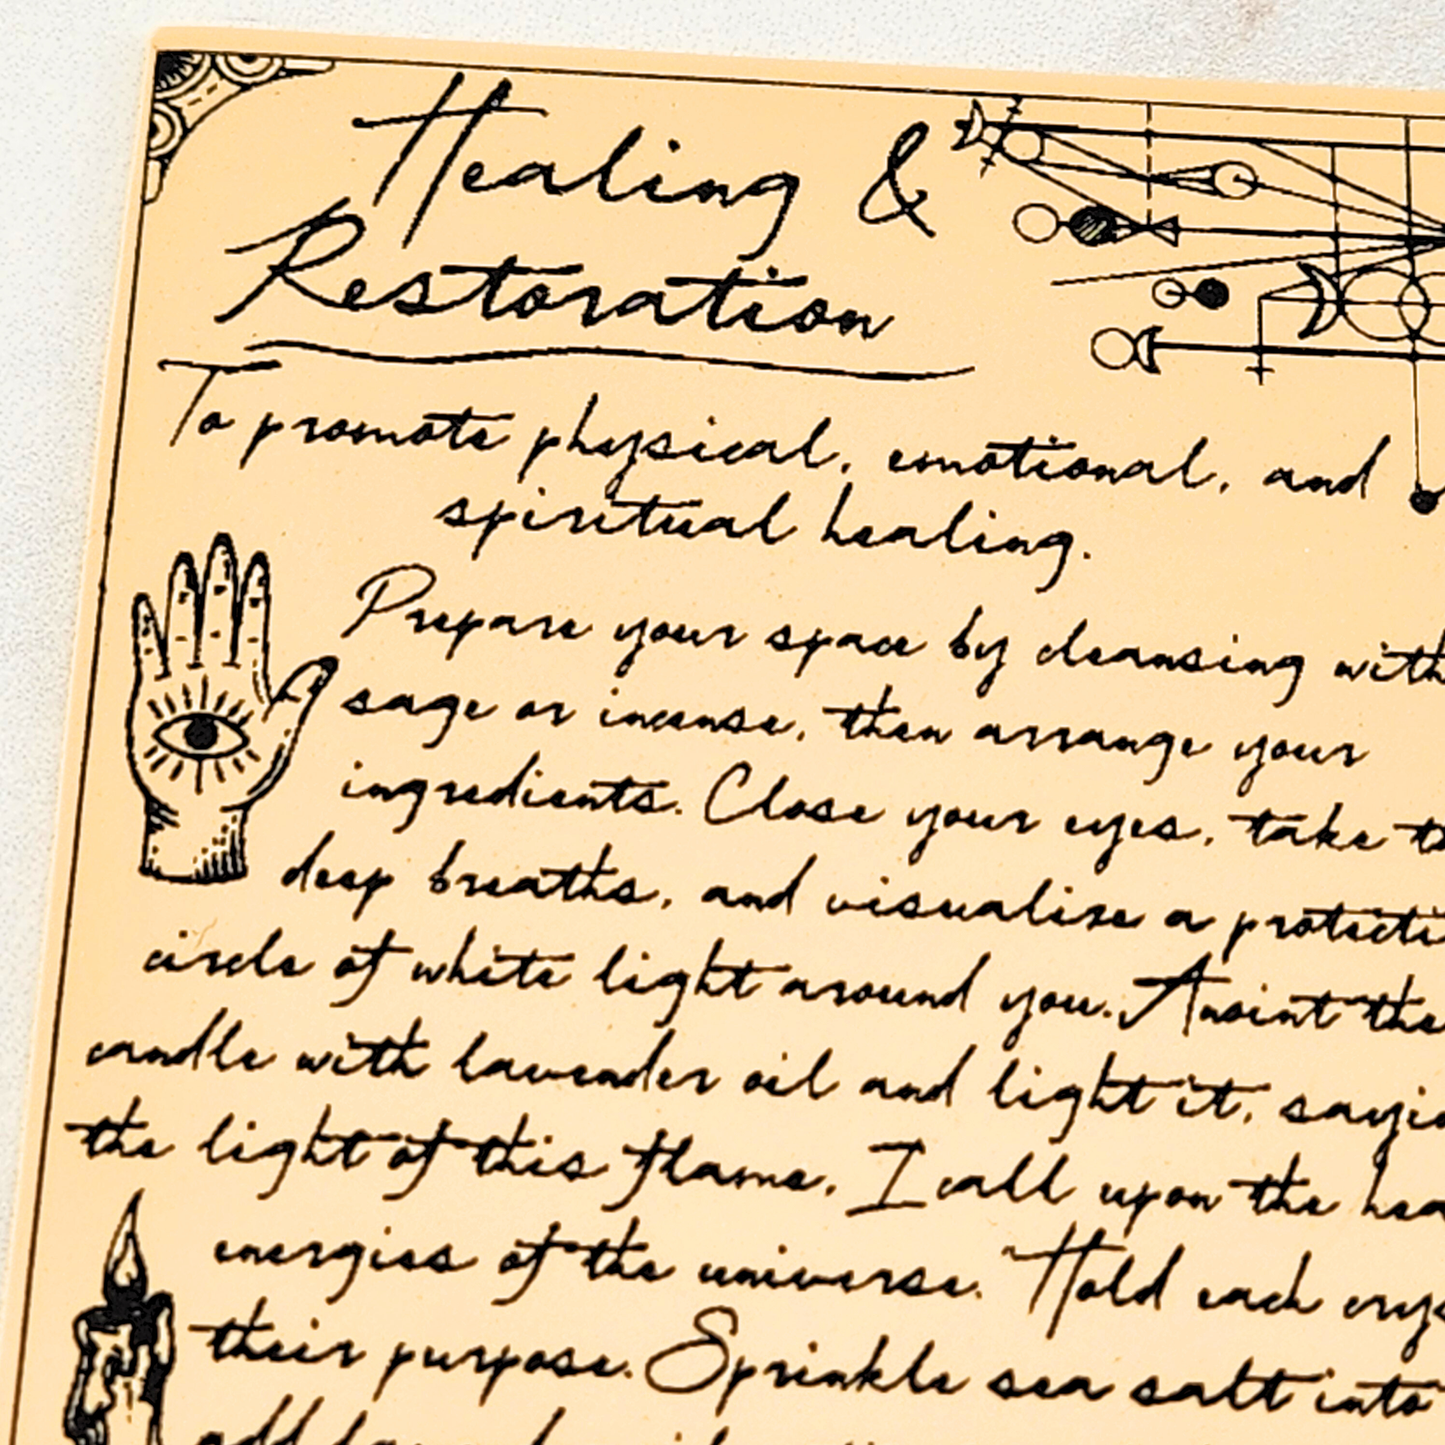 Healing &
Restoration
To promote physical, emotional, and
spiritual healing.
Prepare your space by cleansing with
sage or incense, then arrange your
ingredients. Close your eyes, take
deep breaths, and visualise a
circle of white light around you. Anoint the
candle with lavender oil and light it,
the light of this flame, I call upon the
energies of the universe. Hold each
their purpose. Sprinkle sea salt into